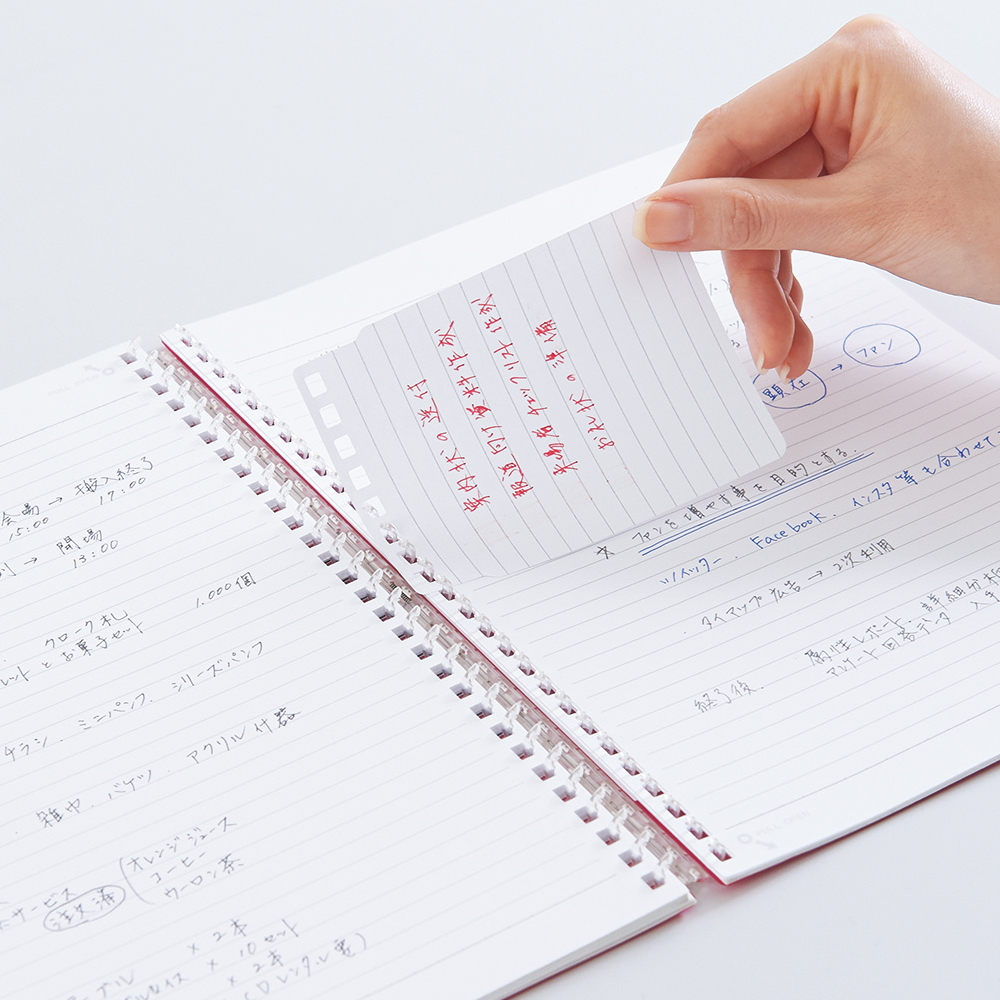 会場 → 搬入終了
15:00 17:00
→ 開場
13:00
クローク札 1,000個
とお菓子セット
チラシ、ミニパンフ、シリーズパンフ
雑巾、バケツ、アクリル什器
サービス
注文済
オレンジジュース
コーヒー
ウーロン茶
× 2本
× 10セット
× 2本
案内状の送付
報道向け資料作成
来場者チェックリスト作成
お礼状の準備
顕在 → ファン
☆ ファンを増やす事を目的とする。
ツイッター、Facebook、インスタ等も合わせて
タイアップ広告 → 2次利用
終了後、
属性レポート、詳細分析
アンケート回答データ 入手